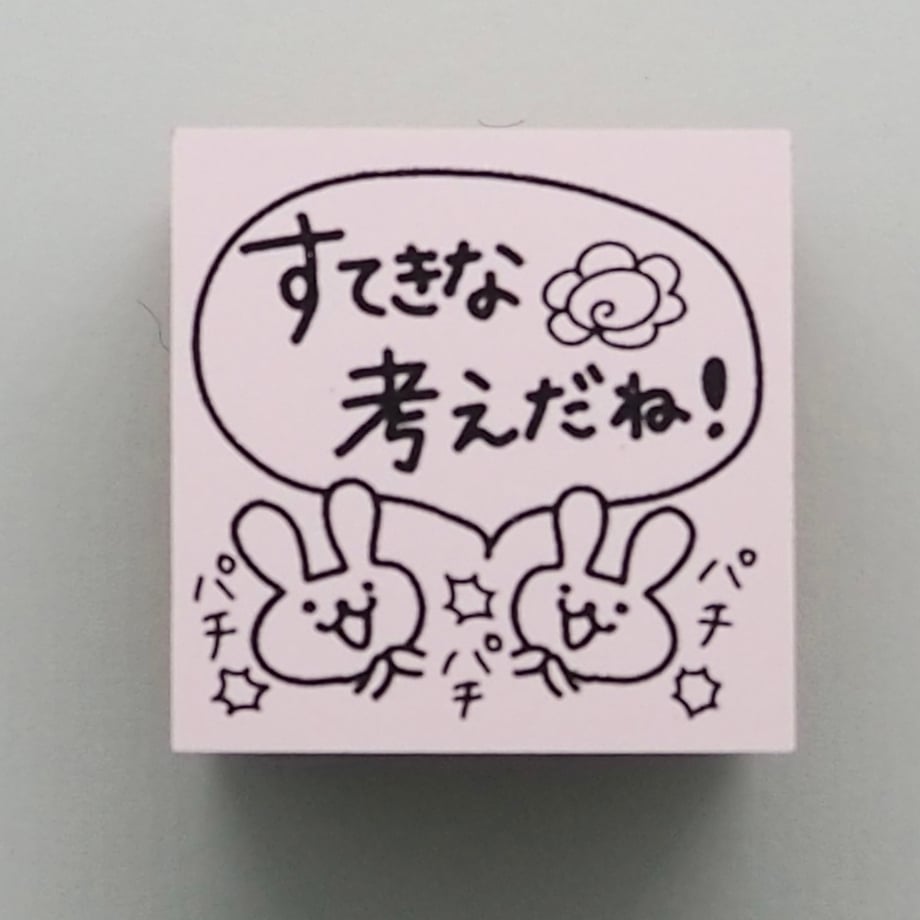 すてきな
考えだね!
パチ
パチ
パチ